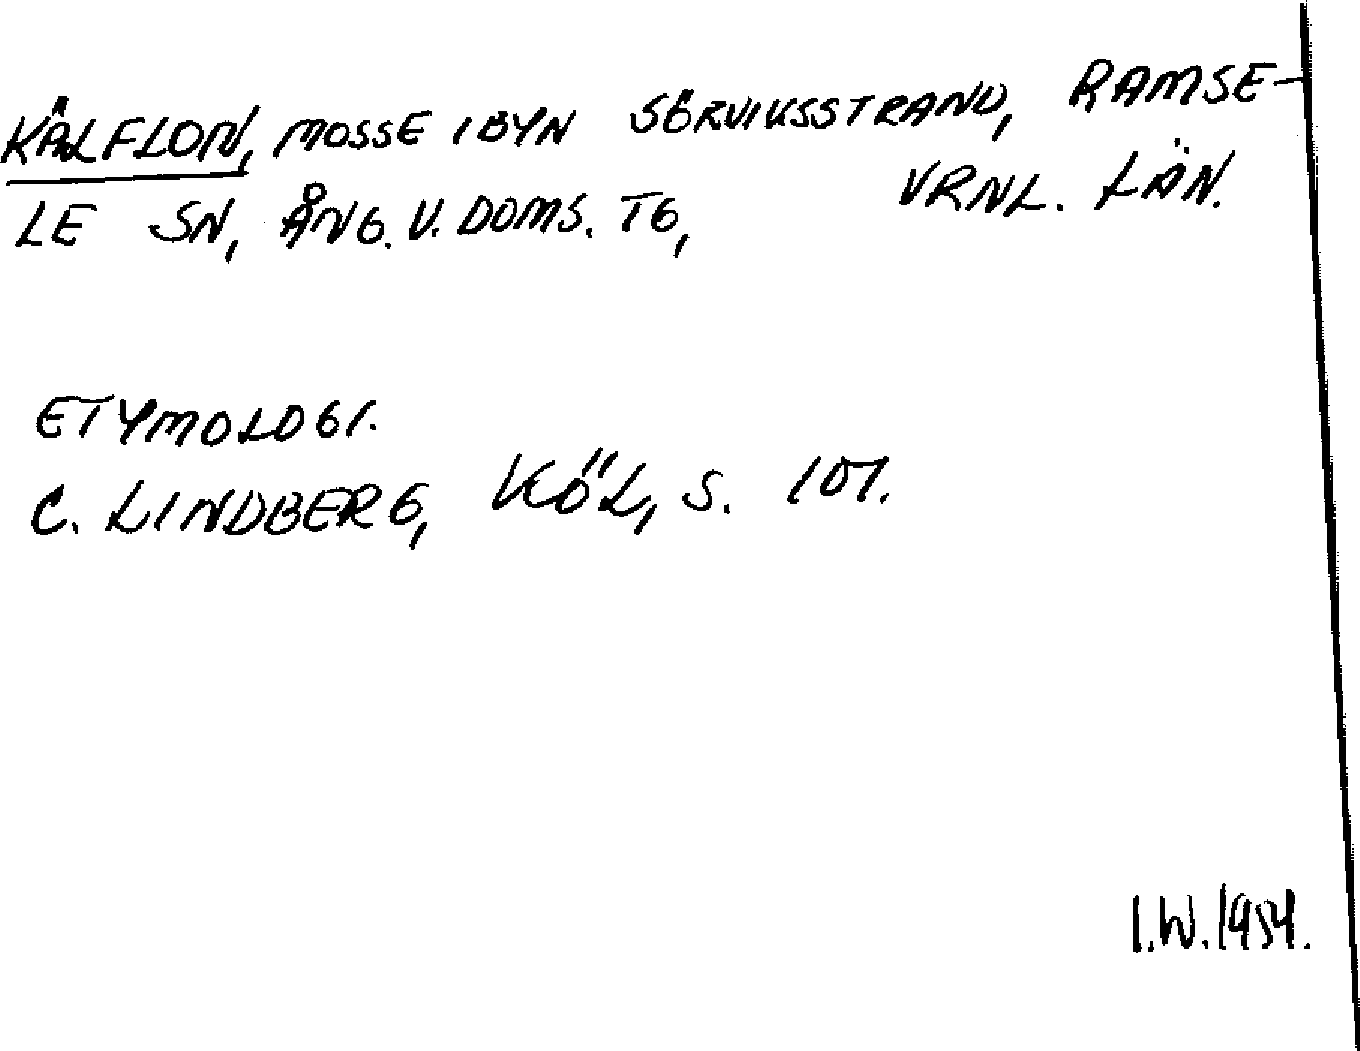 KÅLFLON, MOSSE I BYN SÖRVIKSSTRAND, RAMSE-
LE SN, ÅNG. V. DOMS. TG, VRNL. LÄN.
ETYMOLOGI.
C. LINDBERG, KÖL, S. 107.
I.W. 1954.